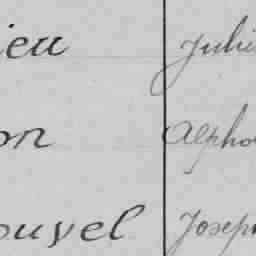 ieu Juli
on Alpho
ouvel Joseph